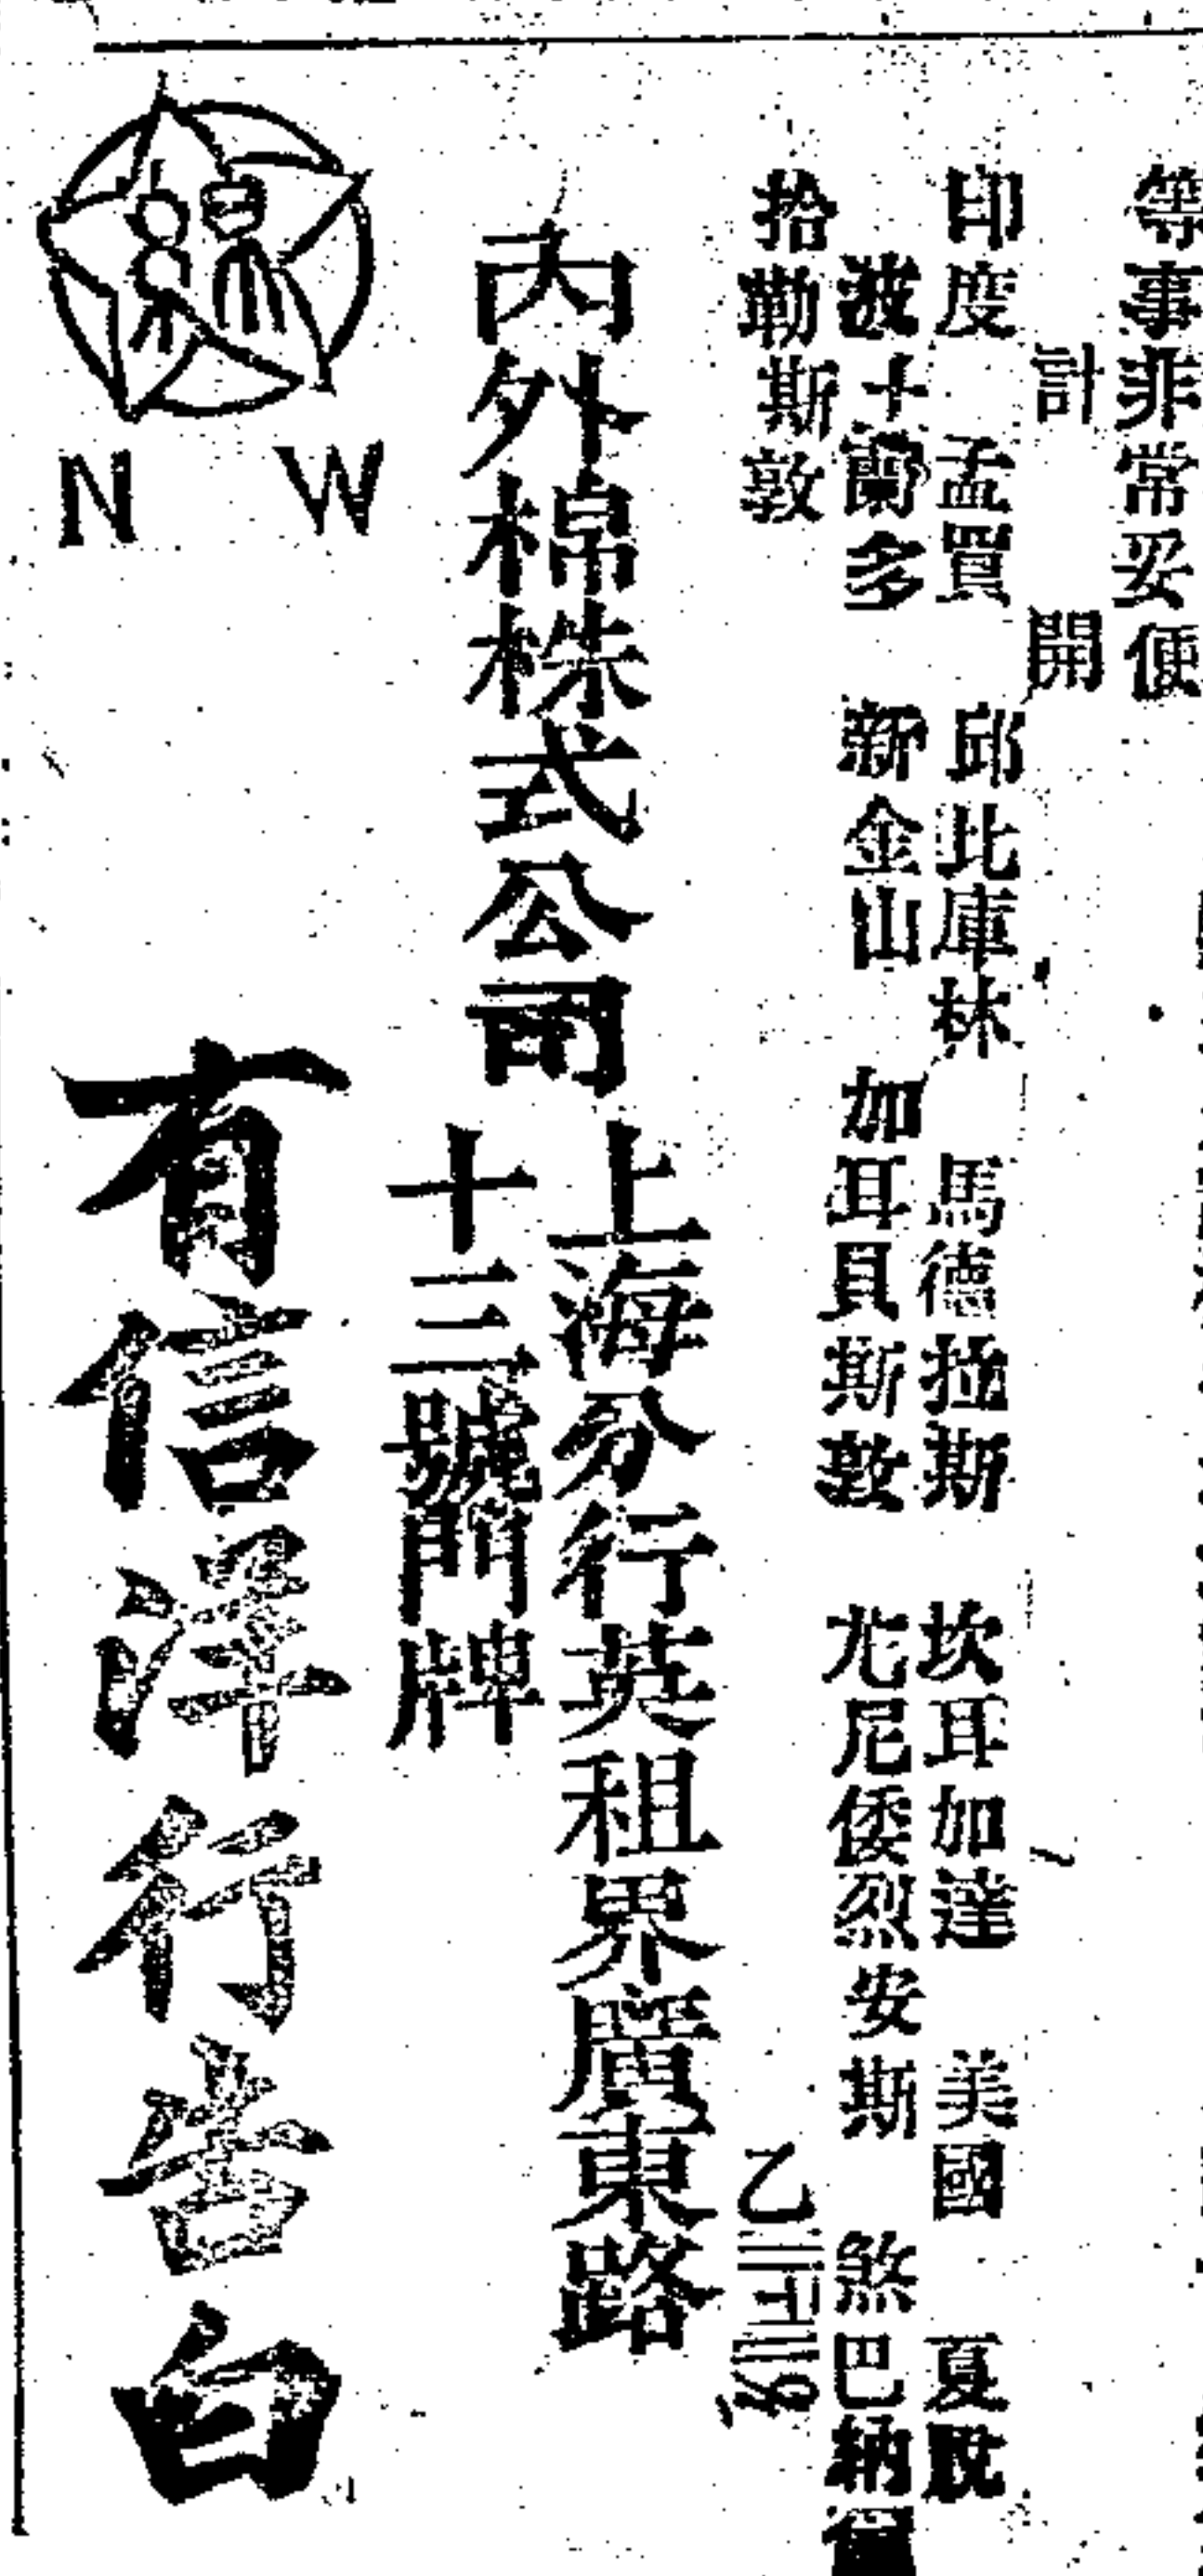 等事非常妥便
計 開
印度 孟買 邱比庫林 馬德拉斯 坎耳加達 美國 夏脫
波士蘭多 新金山 加耳貝斯敦 尤尼倭烈安斯 煞巴納
拾勒斯敦
內外棉株式公司
上海分行英租界廣東路
十三號門牌
N W
有信洋行告白